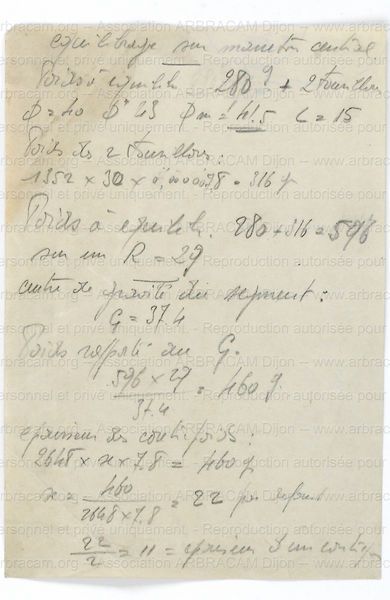 equilibrage sur maneton central
Poids à equilib. 280 g + 2 tourillons
Ø = 40 Ø 43 Ø m = 41.5 L = 15
Poids des 2 tourillons :
1352 × 30 × 0,0000078 = 316 g
Poids à equilib. 280 + 316 = 596
sur un R = 29
centre de gravité du segment :
G = 37.4
Poids rapporté au G.
596 × 29 / 37.4 = 460 g.
epaisseur des contrepoids :
2648 × x × 7.8 = 460 g
x = 460 / 2648 × 7.8 = 22 par
22 / 2 = 11 = epaisseur d'un contrep.
personnel et privé uniquement. -- Reproduction autorisée pour un
org -- Association ARBRACAM Dijon -- www.arbracam.org